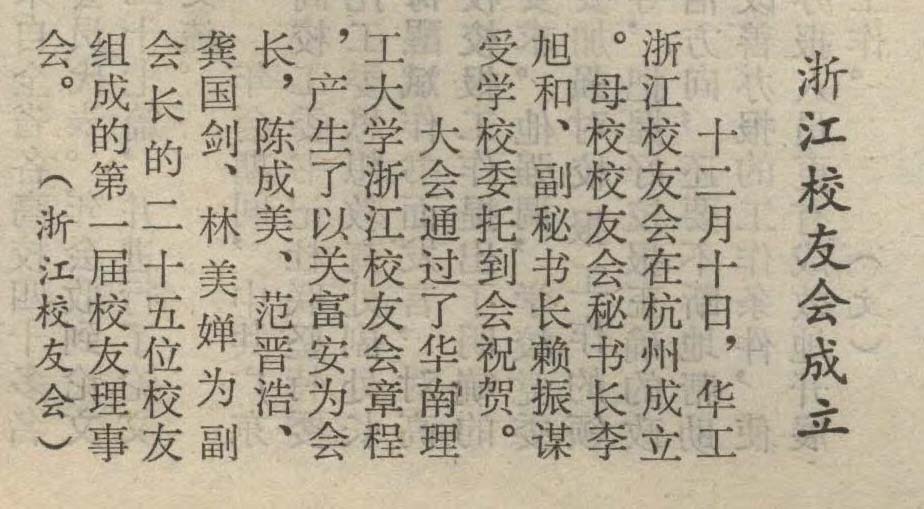 浙江校友会成立
十二月十日，华工
浙江校友会在杭州成立
。母校校友会秘书长李
旭和、副秘书长赖振谋
受学校委托到会祝贺。
大会通过了华南理
工大学浙江校友会章程
，产生了以关富安为会
长，陈成美、范晋浩、
龚国剑、林美婵为副
会长的二十五位校友
组成的第一届校友理事
会。（浙江校友会）